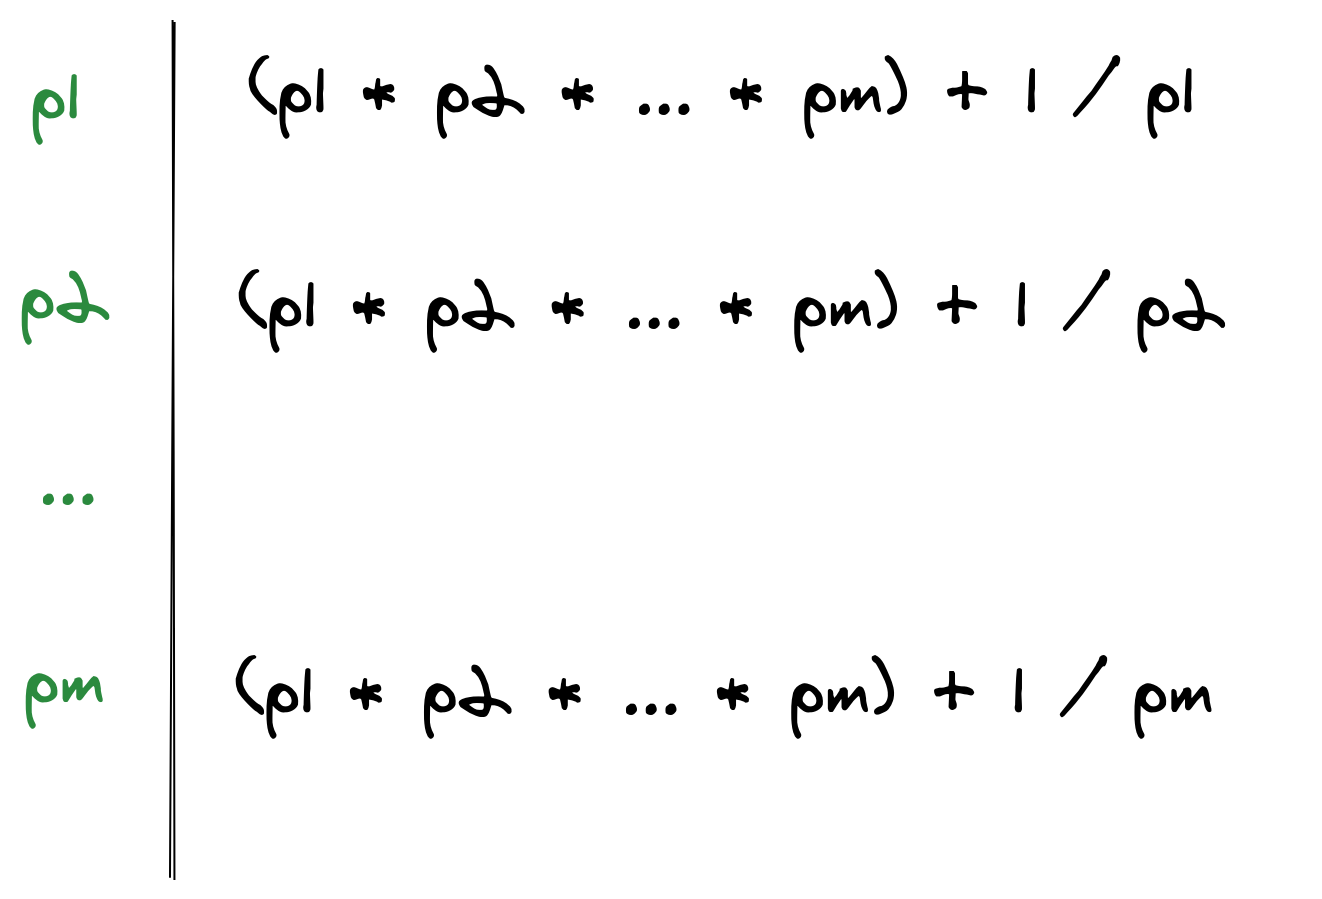 p1 (p1 * p2 * ... * pm) + 1 / p1
p2 (p1 * p2 * ... * pm) + 1 / p2
...
pm (p1 * p2 * ... * pm) + 1 / pm